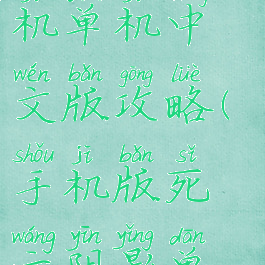 机单机中
wén bǎn gōng lüè
文版攻略(
shǒu jī bǎn sǐ
手机版死
wáng yīn yǐng dān
亡阴影单